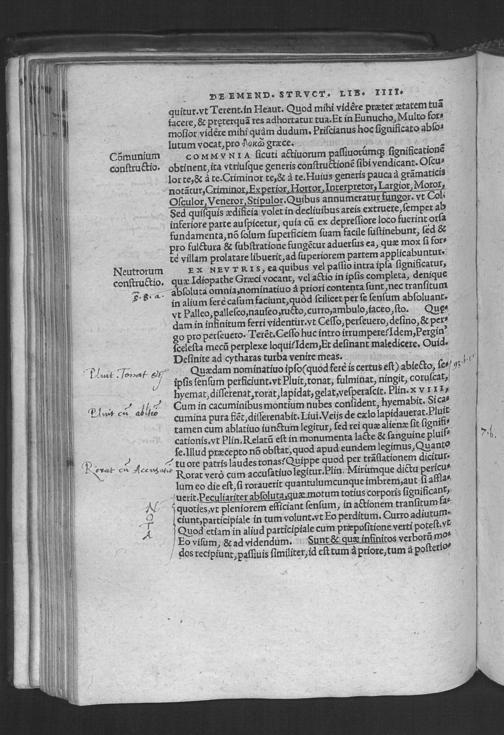 DE EMEND. STRVCT. LIB. IIII.
quitur. vt Terent. in Heaut. Quod mihi vidêre præter ætatem tuā
facere, & pręterquā res adhortatur tua. Et in Eunucho, Multo for-
mosior vidêre mihi quàm dudum. Priscianus hoc significato abso-
lutum vocat, pro δοκῶ græce.
Cōmunium
constructio.
COMMVNIA sicuti actiuorum passiuorúmq; significationē
obtinent, ita vtriusque generis constructionē sibi vendicant. Oscu-
lor te, & à te. Criminor te, & à te. Huius generis pauca à grāmaticis
notātur, Criminor, Experior, Hortor, Interpretor, Largior, Moror,
Osculor, Veneror, Stipulor. Quibus annumeratur fungor. vt Col.
Sed quisquis ædificia volet in decliuibus areis extruere, semper ab
inferiore parte auspicetur, quia cū ex depressiore loco fuerint orsa
fundamenta, nō solum superficiem suam facile sustinebunt, sed &
pro fulctura & substratione fungētur aduersus ea, quæ mox si for-
tè villam prolatare libuerit, ad superiorem partem applicabuntur.
Neutrorum
constructio.
EX NEVTRIS, ea quibus vel passio intra ipsa significatur,
quæ Idiopathe Græci vocant, vel actio in ipsis completa, denique
absoluta omnia, nominatiuo à priori contenta sunt, nec transitum
in alium ferè casum faciunt, quòd scilicet per se sensum absoluant.
vt Palleo, pallesco, nauseo, ructo, curro, ambulo, iaceo, sto. Quę-
dam in infinitum ferri videntur. vt Cesso, perseuero, desino, & per-
go pro perseuero. Terēt. Cesso huc intro irrumpere? Idem, Pergin'
scelesta mecū perplexe loqui? Idem, Et desinant maledicere. Ouid.
Desinite ad cytharas turba venire meas.
Pluit. Tonat
Quædam nominatiuo ipso (quod ferè is certus est) abiecto, se-
ipsis sensum perficiunt. vt Pluit, tonat, fulminat, ningit, coruscat,
hyemat, disserenat, rorat, lapidat, gelat, vesperascit. Plin. XVIII,
Cum in cacuminibus montium nubes consident, hyemabit. Si ca-
cumina pura fiēt, disserenabit. Liui. Veijs de cælo lapidauerat. Pluit
Pluit cū
tamen cum ablatiuo iunctum legitur, sed rei quæ alienæ sit signifi-
cationis. vt Plin. Relatū est in monumenta lacte & sanguine pluis-
se. Illud præcepto nō obstat, quod apud eundem legimus, Quanto
tu ore patris laudes tonas? Quippe quod per trāslationem dicitur.
Rorat cū Accusatio
Rorat verò cum accusatiuo legitur. Plin. Mirúmque dictu pericu-
lum eo die est, si rorauerit quantulumcunque imbrem, aut si afflā-
uerit. Peculiariter absoluta, quæ motum totius corporis significant,
NOTA
quoties, vt pleniorem efficiant sensum, in actionem transitum fa-
ciunt, participiale in tum volunt. vt Eo perditum. Curro adiutum.
Quod etiam in aliud participiale cum præpositione verti potest. vt
Eo visum, & ad videndum. Sunt & quæ infinitos verborū mo-
dos recipiunt, passiuis similiter, id est tum à priore, tum à posterio-
7.6.